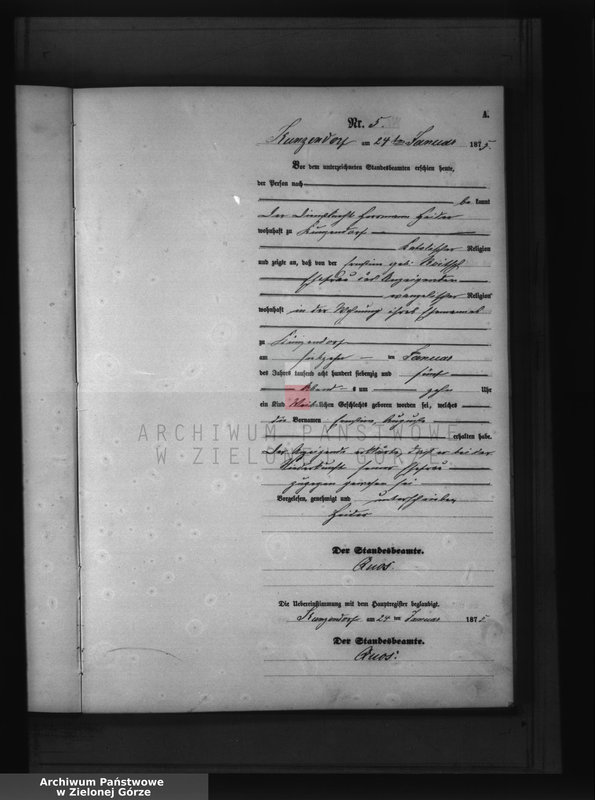 A.
Nr. 5
Kunzendorf am 24ten Januar 1875.
Vor dem unterzeichneten Standesbeamten erschien heute,
der Person nach
bekannt
Der Dienstknecht Herrmann Heider
wohnhaft zu Kunzendorf
katolischer Religion
und zeigte an, daß von der Ernstine geb.
Ehefrau des Anzeigenden
evangelischer Religion
wohnhaft in der Wohnung ihres Ehemanns
zu Kunzendorf
am im Januar
des Jahres tausend acht hundert siebenzig und fünf
Abends um zehn Uhr
ein Kind Weiblichen Geschlechts geboren worden sei, welches
die Vornamen Ernstine Auguste
erhalten habe.
Der Anzeigende erklärte, dass er bei der
Niederkunft seiner Ehefrau
zugegen gewesen sei
Vorgelesen, genehmigt und unterschrieben
Heider
Der Standesbeamte.
Die Uebereinstimmung mit dem Hauptregister beglaubigt.
Kunzendorf am 24ten Januar 1875
Der Standesbeamte.
ARCHIWUM PAŃSTWOWE
W ZIELONEJ GÓRZE
Archiwum Państwowe
w Zielonej Górze